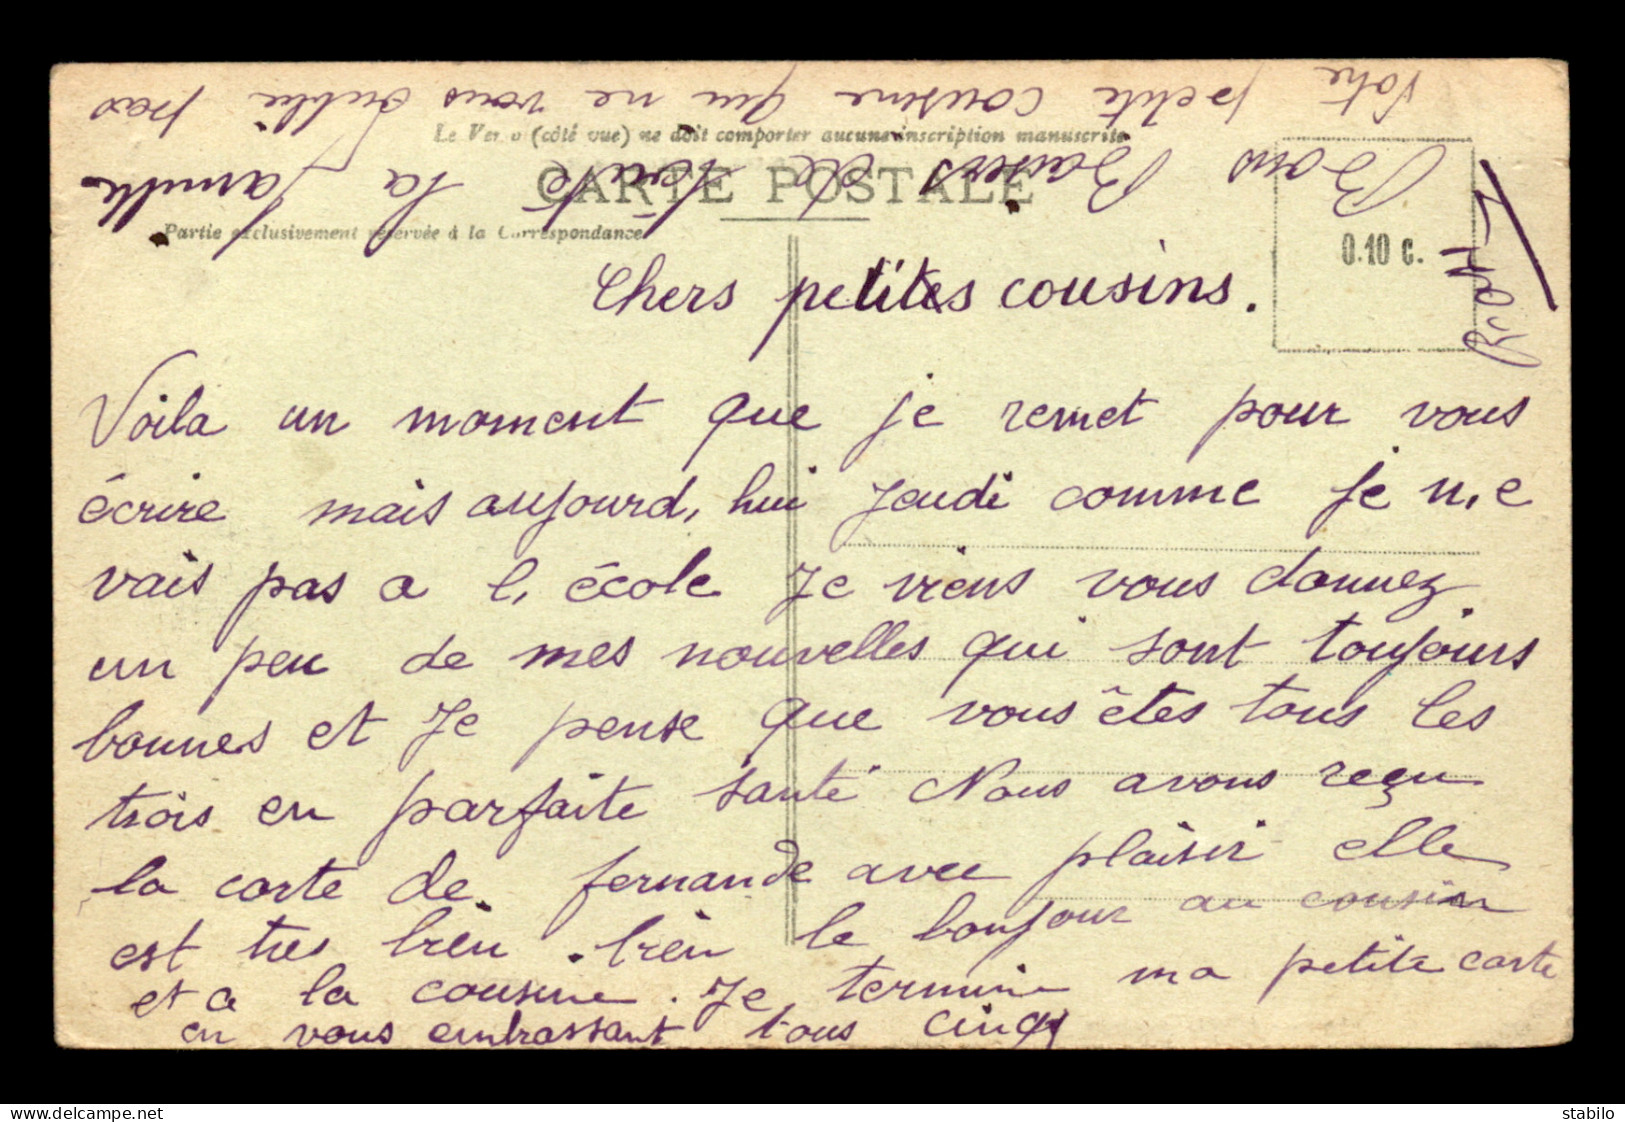 Le Verso (côté vue) ne doit comporter aucune inscription manuscrite
CARTE POSTALE
Partie exclusivement réservée à la Correspondance
0.10 c.
Chers petites cousins.
Voila un moment que je remet pour vous
écrire mais aujourd, hui Jeudi comme Je n, e
vais pas a l, école Je viens vous donnez
un peu de mes nouvelles qui sont toujours
bonnes et Je pense que vous êtes tous les
trois en parfaite santé Nous avons reçu
la carte de fernande avec plaisir elle
est tres bien . bien le bonjour au cousin
et a la cousine . Je termine ma petite carte
en vous embrassant tous cinq
Votre petite cousine qui ne vous oublie pas
Bons Baisers de toute la famille